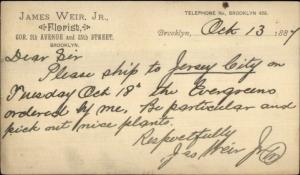 JAMES WEIR, JR.,
Florist,
COR. 5th AVENUE and 25th STREET,
BROOKLYN.
TELEPHONE No., BROOKLYN 409.
Brooklyn, Oct 13 1887
Dear Sir
Please ship to Jersey City on
Tuesday Oct 18th the Evergreens
ordered by me. Be particular and
pick out nice plants.
Respectfully
Jas Weir Jr